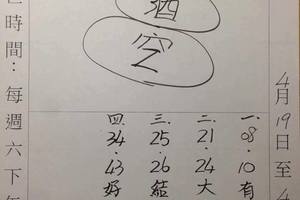 4月19日至4
酒
空
一.08.10有
二.21.24大
三.25.26結
四.34.43好
時間：每週六下午